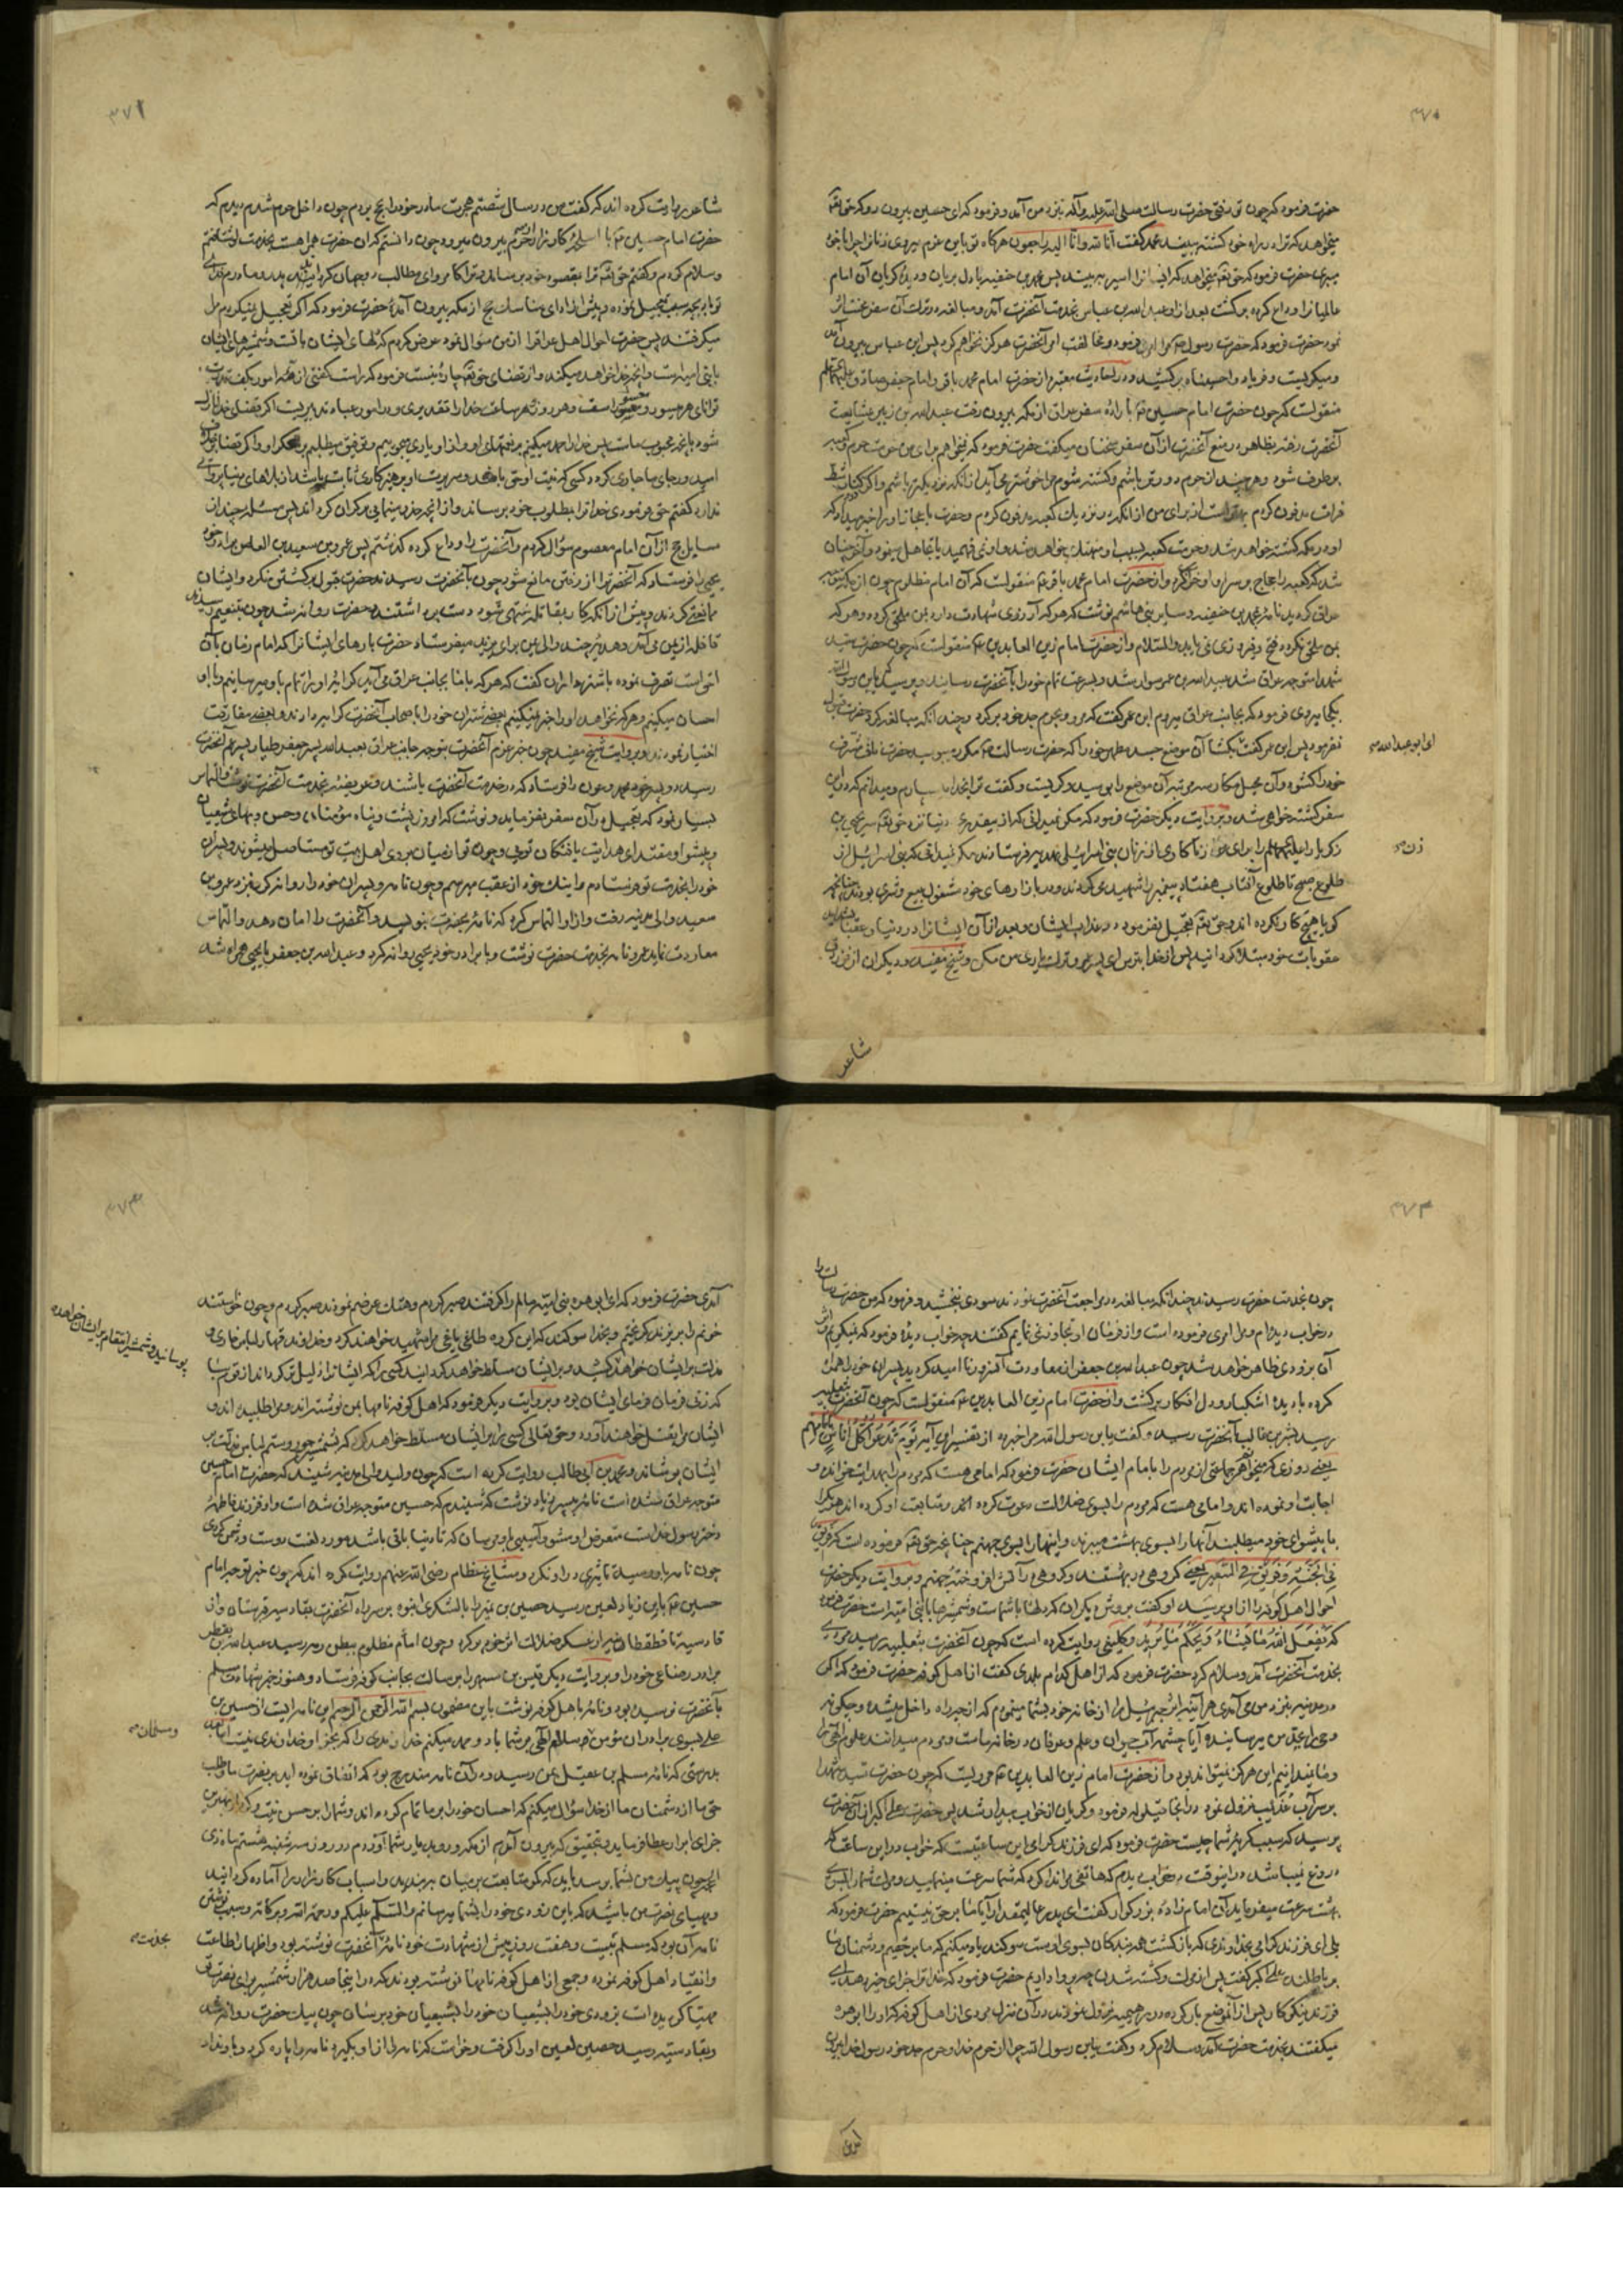 ٣٧٠
حضرت فرمود که چون تو رفتی حضرت رسالت صلی الله علیه وآله نزد من آمد و فرمود که ای حسین بیرون رو که حق تعالی
میخواهد که ترا در راه خود کشته بیند محمد گفت انا لله وانا الیه راجعون هرگاه تو باین عزم میروی زنانرا چرا با خود
میبری حضرت فرمود که حق تعالی میخواهد که ایشانرا اسیر ببیند پس محمد بن حنفیه با دل بریان و دیده گریان آن امام
عالمیانرا وداع کرده برگشت بعد از او عبد الله بن عباس بخدمت آنحضرت آمد و مبالغه در ترک آن سفر
نمود حضرت فرمود که حضرت رسول مرا امری فرموده و مخالفت امر آنحضرت هرگز نخواهم کرد پس ابن عباس بیرون آمد
و میگریست و فریاد واحسیناه برکشید و در احادیث معتبره از حضرت امام محمد باقر و امام جعفر صادق علیهما السلام
منقولست که چون حضرت امام حسین ع باراده سفر عراق از مکه بیرون رفت عبد الله بن زبیر بمشایعت
آنحضرت رفت بظاهر در منع آنحضرت از آن سفر سخنان میگفت حضرت فرمود که نمیخواهم برای من حرمت حرم کعبه
برطرف شود و هر چند از حرم دورتر باشم و کشته شوم مرا خوشتر می آید از آنکه نزدیکتر باشم و اگر کنار شط
فرات مدفون گردم بهتر است از برای من از آنکه در نزدیک کعبه مدفون گردم و حضرت باعجاز او را خبر میداد که
او در مکه کشته خواهد شد و حرمت کعبه بسبب او هتک خواهد شد و او نمی فهمید یا تجاهل مینمود و آخر چنان
شد که کعبه را حجاج بر سر او خراب کرد و از حضرت امام محمد باقر ع منقولست که آن امام مظلوم چون از مکه متوجه
عراق گردید نامه بمحمد بن حنفیه و سایر بنی هاشم نوشت که هر که آرزوی شهادت دارد بمن ملحق گردد و هر که
بمن ملحق نگردد فتح و فیروزی نمی یابد والسلام و از حضرت امام زین العابدین ع منقولست که چون حضرت سید
شهدا متوجه عراق شد عبد الله بن عمر سوار شد و بسرعت تمام خود را بآنحضرت رسانید و پرسید که یا بن رسول الله
بکجا میروی فرمود که بجانب عراق میروم ابن عمر گفت که مرو و بحرم جد خود برگرد و چندانکه مبالغه کرد حضرت قبول
نفرمود پس ابن عمر گفت بگشا آن موضع جسد مطهر خود را که حضرت رسالت ع مکرر میبوسید حضرت ناف شریف
خود را گشود و آن محل مکارم سه مرتبه آن موضع را بوسید و گریست و گفت ترا بخدا میسپارم و میدانم که در این
سفر کشته خواهی شد و بروایت دیگر حضرت فرمود که مگر نمیدانی که از بیقدری دنیا نزد حق تعالی سر یحیی بن
زکریا را برای زناکاری از زنان بنی اسرائیل بهدیه فرستادند مگر نمیدانی که بنی اسرائیل از
طلوع صبح تا طلوع آفتاب هفتاد پیغمبر را شهید می کردند و در بازارهای خود مشغول بیع و شری بودند چنانچه
گویا هیچ کار نکرده اند و حق تعالی تعجیل نفرمود در عذاب ایشان و بعد از آن ایشانرا در دنیا و عقبا
عقوبات خود مبتلا گردانید پس از خدا بترس ای پسر عمر و ترک یاری من مکن و شیخ مفید و دیگران از فرزدق
ای ابو عبد الله
زن
شاعر
٣٧١
شاعر روایت کرده اند که گفت من در سال شصتم هجرت مادر خود را بحج بردم چون داخل حرم شدم دیدم که
حضرت امام حسین ع با اسلحه کارزار از حرم بیرون میرود چون دانستم که آن حضرت همراهست بخدمت او شتافتم
وسلام کردم و گفتم حق تعالی ترا بمقصود خود برساند و ترا کامروای مطالب دو جهان گرداند پدر و مادرم فدای
تو باد بچه سبب تعجیل نموده و پیش از ادای مناسک حج از مکه بیرون آمدی حضرت فرمود که اگر تعجیل نمیکردم مرا
میگرفتند پس حضرت احوال اهل عراقرا از من سوال نمود عرض کردم که دلهای ایشان با تست و شمشیرهای ایشان
با بنی امیه است و آنچه خدا خواهد میکند و از قضای حق تعالی چاره نیست فرمود که راست گفتی از همه امور بکف قدرت
توانای هر میسور و معسور است و هر روز
شود بآنچه محبوب ماست پس خدا را حمد میکنیم بر نعمتهای او و از او یاری میجوییم و توفیق میطلبیم بر شکر او و اگر قضا
ندارد گفتم حق فرمودی خدا ترا بمطلوب خود برساند و از آنچه حذر مینمایی بر کران گرداند پس مسئله چند از
مسایل حج از آن امام معصوم سؤال کردم و آنحضرت را وداع کرده گذشتم پس عمرو بن سعید بن العاص برادر خود
یحیی را فرستاد که آنحضرترا از رفتن مانع شود چون بآنحضرت رسیدند حضرت قبول برگشتن نکرد و ایشان
ممانعتی کردند و پیش از آنکه کار بمقاتله منتهی شود دست برداشتند و حضرت روانه شد چون بتنعیم رسید
قافله از یمن می آمد و هدیه چند والی یمن برای یزید میفرستاد حضرت بارهای ایشانرا که امام زمان بآن
اولی است تصرف نمود و با شترداران گفت که هر که با ما بجانب عراق می آید کرایه او را تمام باو میرسانیم و با او
احسان میکنیم و هر که نخواهد او را جبر نمیکنیم بعضی شتران خود را باصحاب آنحضرت کرایه دادند و بعضی مفارقت
اختیار نمودند و بروایت شیخ مفید چون خبر عزم آنحضرت بتوجه جانب عراق بعبد الله پسر جعفر طیار پسر عم آنحضرت
رسید دو پسر خود محمد و عون را فرستاد که در خدمت آنحضرت باشند و عریضه بخدمت آنحضرت نوشت و التماس
بسیار نمود که تعجیل در آن سفر نفرماید و نوشت که امروز پشت و پناه مؤمنان
و پیشوا و مقتدای هدایت یافتگان تویی و چون تو از میان بروی اهل بیت تو مستاصل میشوند و پسران
خود را بخدمت تو فرستادم و اینک خود از عقب میرسم و چون نامه و پسران خود را روانه کرد نزد عمرو بن
سعید والی مدینه رفت و از او التماس کرد که نامه بحضرت بنویسد و آنحضرت را امان دهد و التماس
معاودت نماید عمرو نامه بخدمت حضرت نوشت و با برادر خود یحیی روانه کرد و عبد الله بن جعفر با یحیی همراه شد
٣٧٢
چون بخدمت حضرت رسیدند چندانکه مبالغه در مراجعت آنحضرت نمودند سودی نبخشید و فرمود که من حضرت رسالت را
در خواب دیده ام و مرا امری فرموده است و از فرمان او تجاوز نمی نمایم گفتند چه خواب دیده فرمود که نمیگویم و اثر
آن بزودی ظاهر خواهد شد چون عبد الله بن جعفر از معاودت آنحضرت ناامید گردید پسران خود را همراه
کرده با دیده اشکبار و دل افکار برگشت و از حضرت امام زین العابدین ع منقولست که چون آنحضرت بثعلبیه
رسید بشر بن غالب بآنحضرت رسید و گفت یا بن رسول الله مرا خبر ده از تفسیر این آیه یَوْمَ نَدْعُوا کُلَّ أُناسٍ بِإِمامِهِمْ
یعنی روزی که میخوانیم هر جماعتی از مردم را با امام ایشان حضرت فرمود که امامی هست که مردم را بهدایت خوانده و
اجابت او نموده اند و امامی هست که مردم را بسوی ضلالت دعوت کرده اند و متابعت او کرده اند هر یک را
با پیشوای خود میطلبند آنها را بسوی بهشت میبرند و اینها را بسوی جهنم چنانچه حق تعالی فرموده است که فریق
فِی الْجَنَّةِ وَفَرِیقٌ فِی السَّعِیرِ یعنی گروهی در بهشتند و گروهی در آتش افروخته جهنم و بروایت دیگر حضرت
احوال اهل کوفه را از او پرسید او گفت بروش دیگران که دلها با شماست و شمشیرها با بنی امیه است حضرت فرمود
که یَفْعَلُ اللهُ مَا یَشَاءُ وَیَحْکُمُ مَا یُرِیدُ و کلینی روایت کرده است که چون آنحضرت بثعلبیه رسید مردی
بخدمت آنحضرت آمد و سلام کرد حضرت فرمود که از اهل کدام بلدی گفت از اهل کوفه حضرت فرمود که اگر
در مدینه بنزد من می آمدی هر آینه اثر جبرئیل را از خانه خود بشما مینمودم که از چه راه داخل میشده و چگونه
وحی را بجد من میرسانیده آیا چشمه آب حیوان و علم و عرفان در خانه ماست و مردم میدانند علوم الهی را
و ما نمیدانیم این هرگز نمیتواند بود و از حضرت امام زین العابدین ع مرویست که چون حضرت سید شهدا
بر سر آب عذیب نزول نمود در آنجا قیلوله فرمود و گریان از خواب بیدار شد پس حضرت علی اکبر از آنحضرت
پرسید که سبب گریه شما چیست حضرت فرمود که ای فرزند گرامی این ساعتیست که خواب در این ساعت
دروغ نمیباشد در اینوقت در خواب دیدم که هاتفی مرا ندا کرد که شما سرعت مینمایید و مرگ شما را بسوی
بهشت سرعت میفرماید آن امام زاده بزرگوار گفت ای پدر عالیمقدار آیا ما بر حق نیستیم حضرت فرمود که
بلی ای فرزند گرامی بخداوندی که بازگشت همه بندگان بسوی اوست سوگند یاد میکنم که ما بر حقیم و دشمنان ما
بر باطلند علی اکبر گفت پس از مرگ و کشته شدن چه پروا داریم حضرت فرمود که خدا ترا جزای خیر دهد ای
فرزند نیکوکار پس از آن موضع بار کرده در رهیمیه نزول نمودند در آن منزل مردی از اهل کوفه که او را ابو هره
میگفتند بخدمت حضرت آمد و سلام کرد و گفت یا بن رسول الله چرا از حرم خدا و حرم جد خود رسول خدا بیرون
آمدی
٣٧٣
آمدی حضرت فرمود که ای ابو هره بنی امیه مالم را گرفتند صبر کردم و هتک عرضم نمودند صبر کردم و چون خواستند
خونم را بریزند گریختم و بخدا سوگند که این گروه طاغی یاغی مرا شهید خواهند کرد و خداوند قهار لباس خاری و
مذلت بر ایشان خواهد و بر ایشان مسلط خواهد گردانید کسی را که ایشانرا ذلیل تر گرداند از قوم سبا
که زنی فرمان فرمای ایشان بود و بروایت دیگر فرمود که اهل کوفه نامها بمن نوشته اند و مرا طلبیده اند و
ایشان مرا بقتل خواهند آورد و حق تعالی کسی را بر ایشان مسلط خواهد کرد که
ایشان پوشاند و محمد بن ابی طالب روایت کرده است که چون ولید والی مدینه شنید که حضرت امام حسین
متوجه عراق شده است نامه بپسر زیاد نوشت که شنیدم که حسین متوجه عراق شده است و او فرزند فاطمه
دختر رسول خداست متعرض او مشو و آسیبی باو مرسان که تا دنیا باقی باشد مورد لعنت دوست و دشمن گردی
چون نامه باو رسید تاثیری در او نکرد و مشایخ عظام رضی الله عنهم روایت کرده اند که چون خبر توجه امام
حسین ع بابن زیاد لعین رسید حصین بن نمیر را با لشکری انبوه بر سر راه آنحضرت بقادسیه فرستاد و از
قادسیه تا قطقطانیه از عسکر ضلالت اثر خود پر کرد و چون امام مظلوم ببطن رمه رسید عبد الله بن یقطر
برادر رضاعی خود را و بروایت دیگر قیس بن مسهر را برسالت بجانب کوفه فرستاد و هنوز خبر شهادت مسلم
بآنحضرت نرسیده بود و نامه باهل کوفه نوشت باین مضمون بسم الله الرحمن الرحیم این نامه ایست از حسین بن
علی بسوی برادران مؤمن سلام الهی بر شما باد و حمد میکنم خداوندی را که بجز او خداوندی نیست اما بعد
بدرستی که نامه مسلم بن عقیل بمن رسید و در آن نامه مندرج بود که اتفاق نموده اید بر نصرت ما و طلب
حق ما از دشمنان ما از خدا سؤال میکنم که احسان خود را بر ما تمام گرداند و شما را بر حسن نیت و کردار بهترین
جزای ابرار عطا فرماید و بتحقیق که بیرون آمدم از مکه و رو بدیار شما آوردم در روز سه شنبه هشتم ماه ذی
الحجه چون پیک من بشما برسد باید که کمر متابعت بر میان بربندید و اسباب کارزار را آماده گردانید
و مهیای نصرت من باشید که باین زودی خود را بشما میرسانم والسلام علیکم ورحمة الله وبرکاته و سبب نوشتن
نامه آن بود که مسلم بیست و هفت روز پیش از شهادت خود نامه بآنحضرت نوشته بود و اظهار اطاعت
و انقیاد اهل کوفه نموده و جمعی از اهل کوفه نامها نوشته بودند که در اینجا صد هزار شمشیر برای نصرت تو
مهیا گردیده است بزودی خود را بشیعیان خود برسان چون پیک حضرت روانه شد
و بقادسیه رسید حصین لعین او را گرفت و خواست که نامه را از او بگیرد نامه را پاره کرد و باو نداد
پوسانید و شمشیر انتقام بر ایشان خواهد
و مسلمان
بخدمت